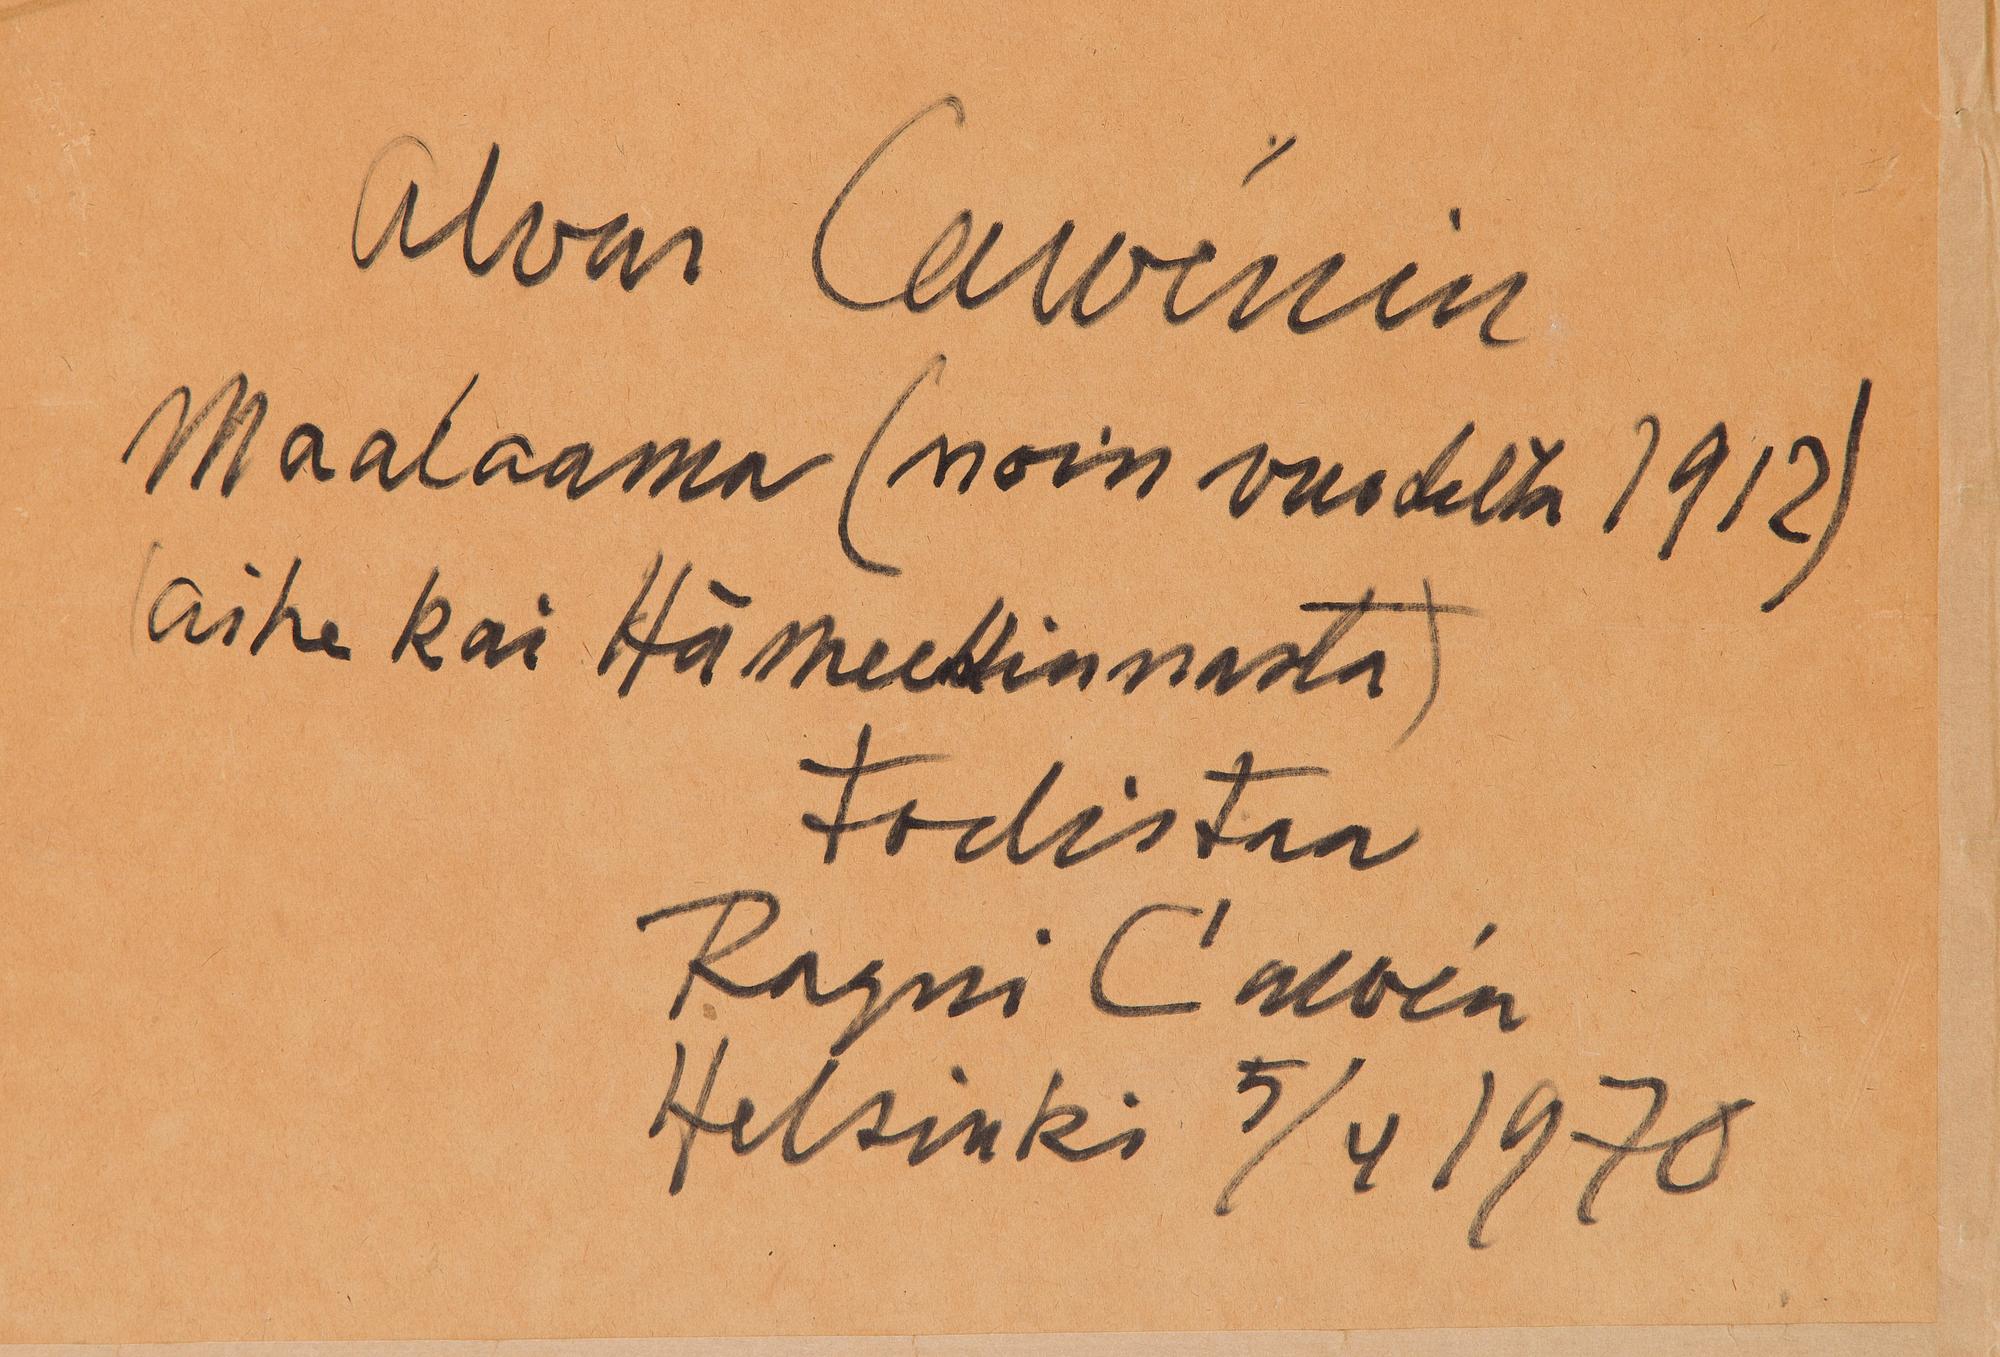 Alvar Cawénin
Maalaama (noin vuodelta 1912)
(aihe kai Hämeenlinnasta)
todistaa
Ragni Cawén
Helsinki 5/4 1970